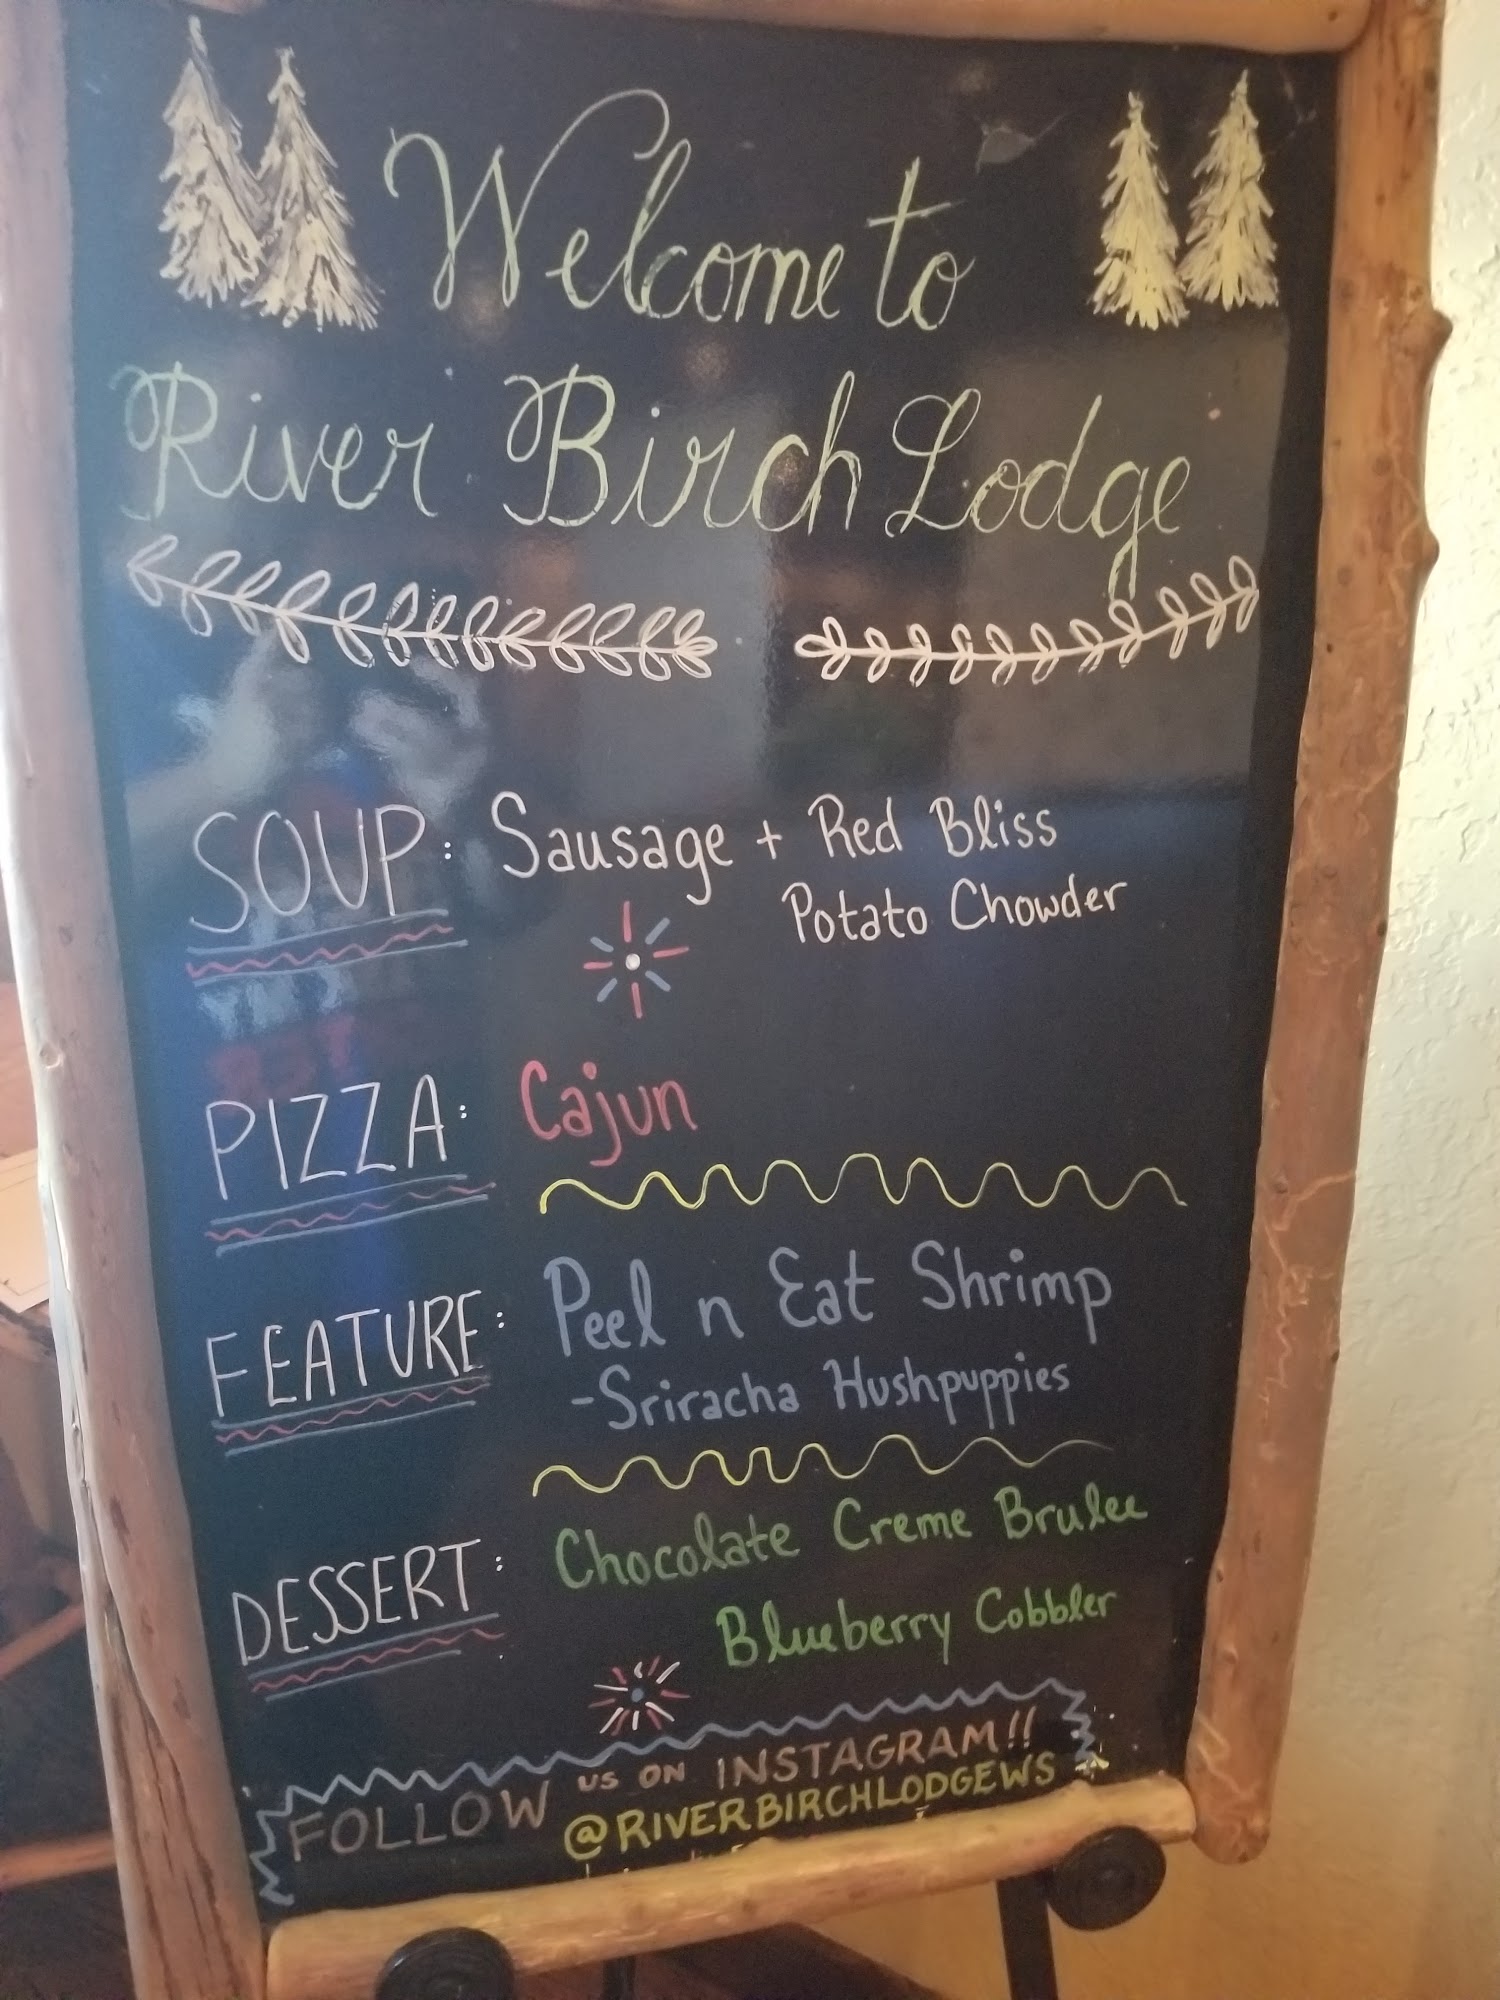 Welcome to
River Birch Lodge
SOUP: Sausage + Red Bliss
Potato Chowder
PIZZA: Cajun
FEATURE: Peel n Eat Shrimp
-Sriracha Hushpuppies
DESSERT: Chocolate Creme Brulee
Blueberry Cobbler
FOLLOW US ON INSTAGRAM!!
@RIVERBIRCHLODGEWS